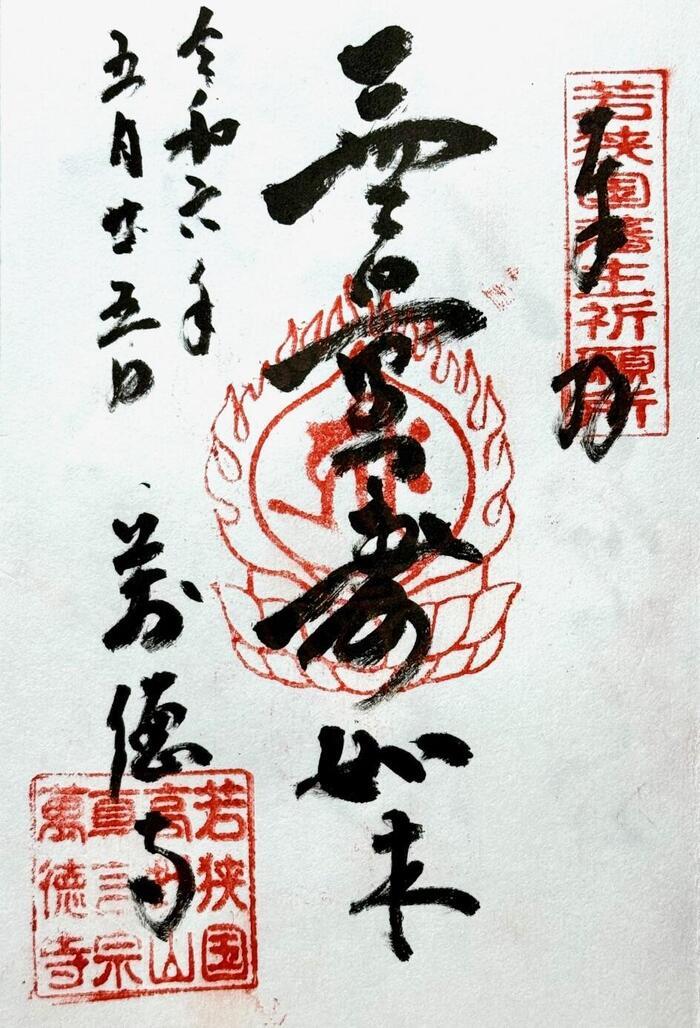 若狭國藩主祈願所
奉拝
無量壽如来
令和六年
五月廿五日
萬徳寺
若狭国
高野山
真言宗
萬徳寺